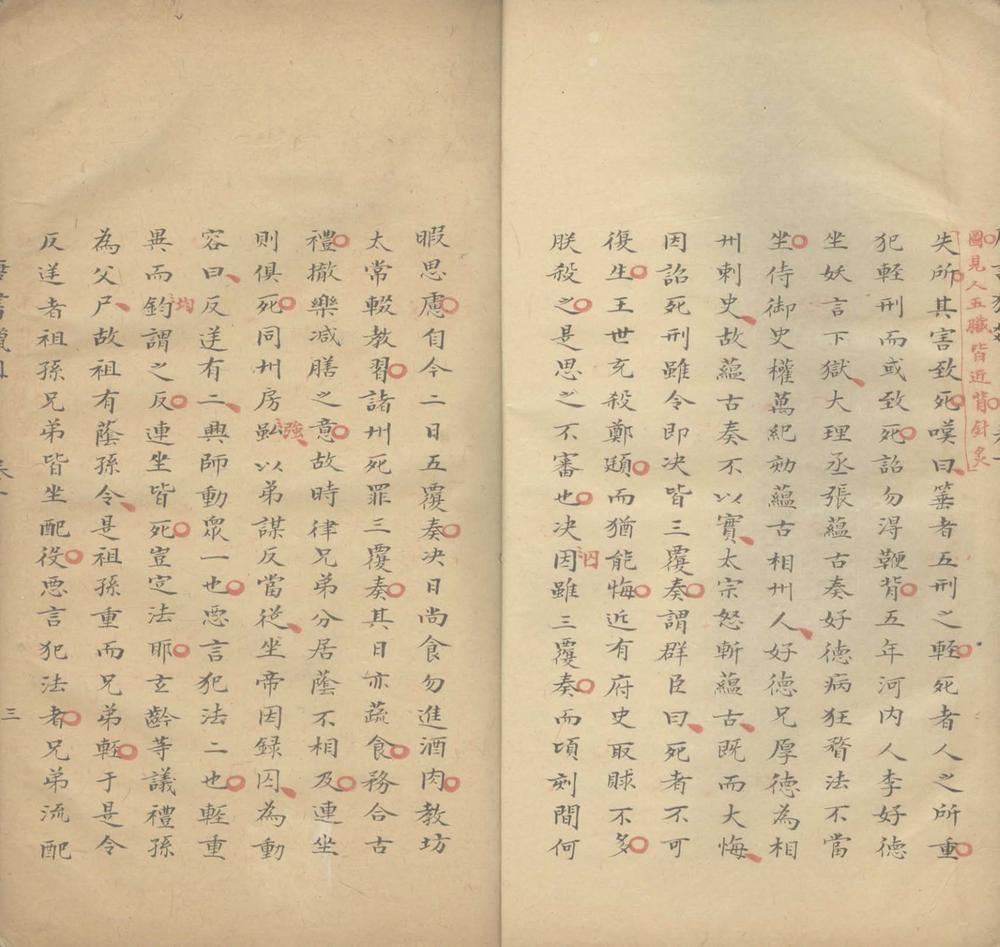 圖見人五臟皆近背針灸
失所其害致死嘆曰箠者五刑之輕死者人之所重
犯輕刑而或致死詔勿得鞭背五年河內人李好德
坐妖言下獄大理丞張蘊古奏好德病狂瞀法不當
坐侍御史權萬紀劾蘊古相州人好德兄厚德為相
州刺史故蘊古奏不以實太宗怒斬蘊古既而大悔
因詔死刑雖令即决皆三覆奏謂群臣曰死者不可
復生王世充殺鄭頲而猶能悔近有府史取賕不多
朕殺之是思之不審也决因囚雖三覆奏而頃刻間何
暇思慮自今二日五覆奏决日尚食勿進酒肉教坊
太常輟教習諸州死罪三覆奏其日亦蔬食務合古
禮撤樂减膳之意故時律兄弟分居蔭不相及連坐
則俱死同州房强以弟謀反當從坐帝因録囚為動
容曰反逆有二興師動眾一也惡言犯法二也輕重
異而鈞均謂之反連坐皆死豈定法耶玄齡等議禮孫
為父尸故祖有蔭孫令是祖孫重而兄弟輕于是令
反逆者祖孫兄弟皆坐配役惡言犯法者兄弟流配
三